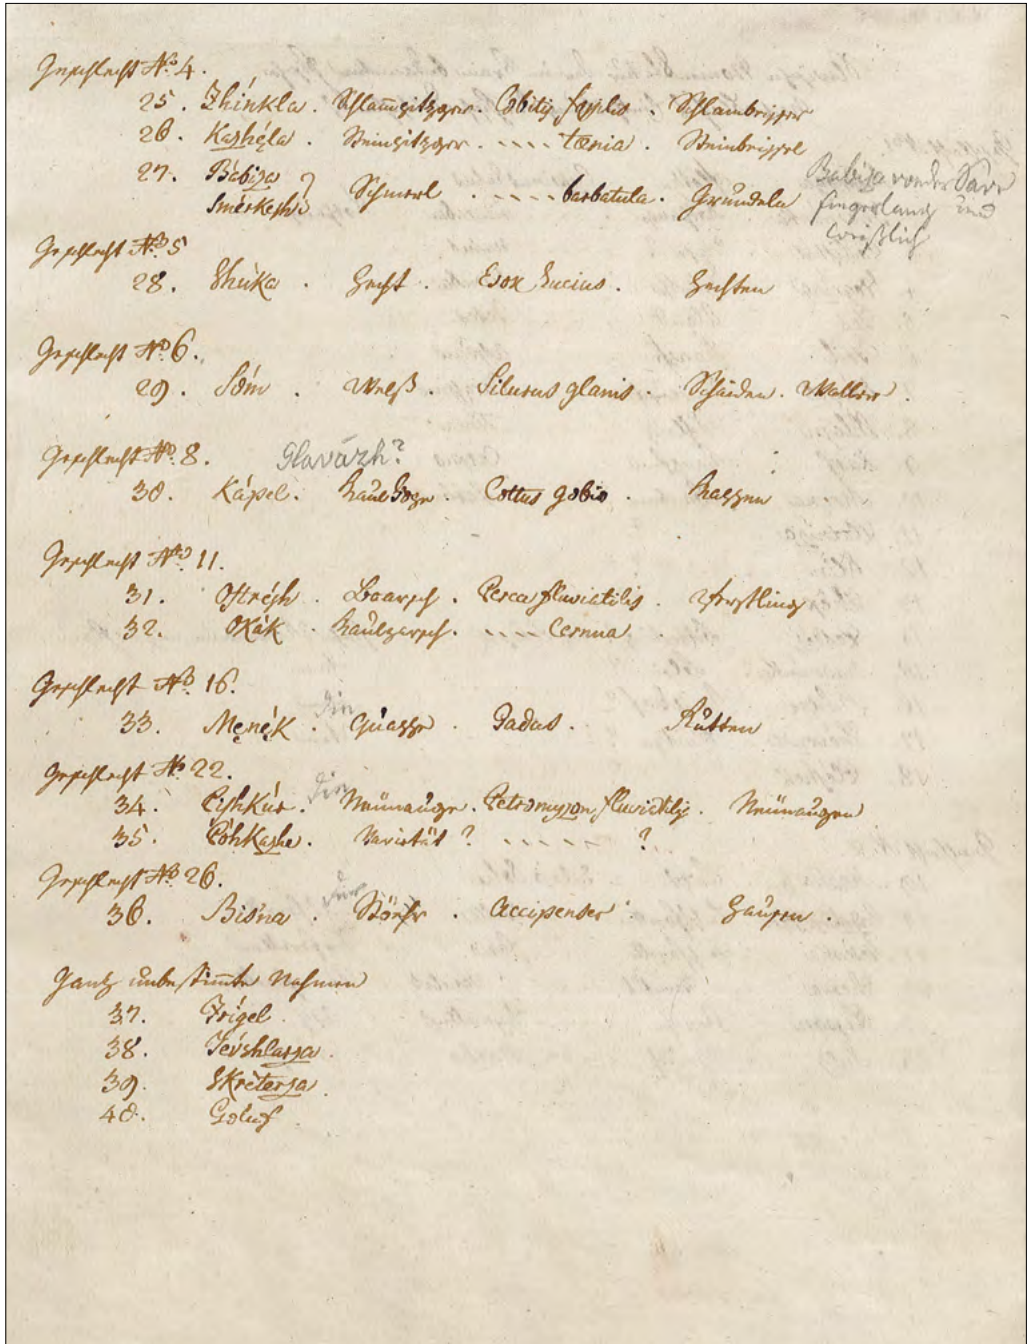 Geschlecht No. 4.
25. Zhinkla. Schlam̄pitzger. Cobitis fossilis. Schlambeisser
26. Kashéla. Steinpitzger. .... tænia. Steinbeissel
27. Bábiza Schmerl . .... barbatula. Grundeln
Smérkesh
Babiza von der Save
fingerlang und
weißlich
Geschlecht No 5
28. Shuka . Hecht . Esox Lucius. Hechten
Geschlecht No 6.
29. Sóm . Welß. Silurus glanis. Schaiden. Waller.
Geschlecht No. 8. Glavázh?
30. Kápel. Cottus gobio. Kappen
Geschlecht No 11.
31. Ostrésh. Baarsch. Perca fluviatilis.
32. Okák. Kaulparsch. .... Cernua.
Geschlecht No 16.
33. Menék. Quappe. Gadus. Rutten
Geschlecht No 22.
34. Pishkúr. Neunauge. Petromyzon fluviatilis. Neunaugen
35. Varietät? ..... ?
Geschlecht No 26.
36. Bisna. Accipenser. Hausen.
Gantz unbestim̄te Nahmen
37. Zrigel.
38.
39.
40.